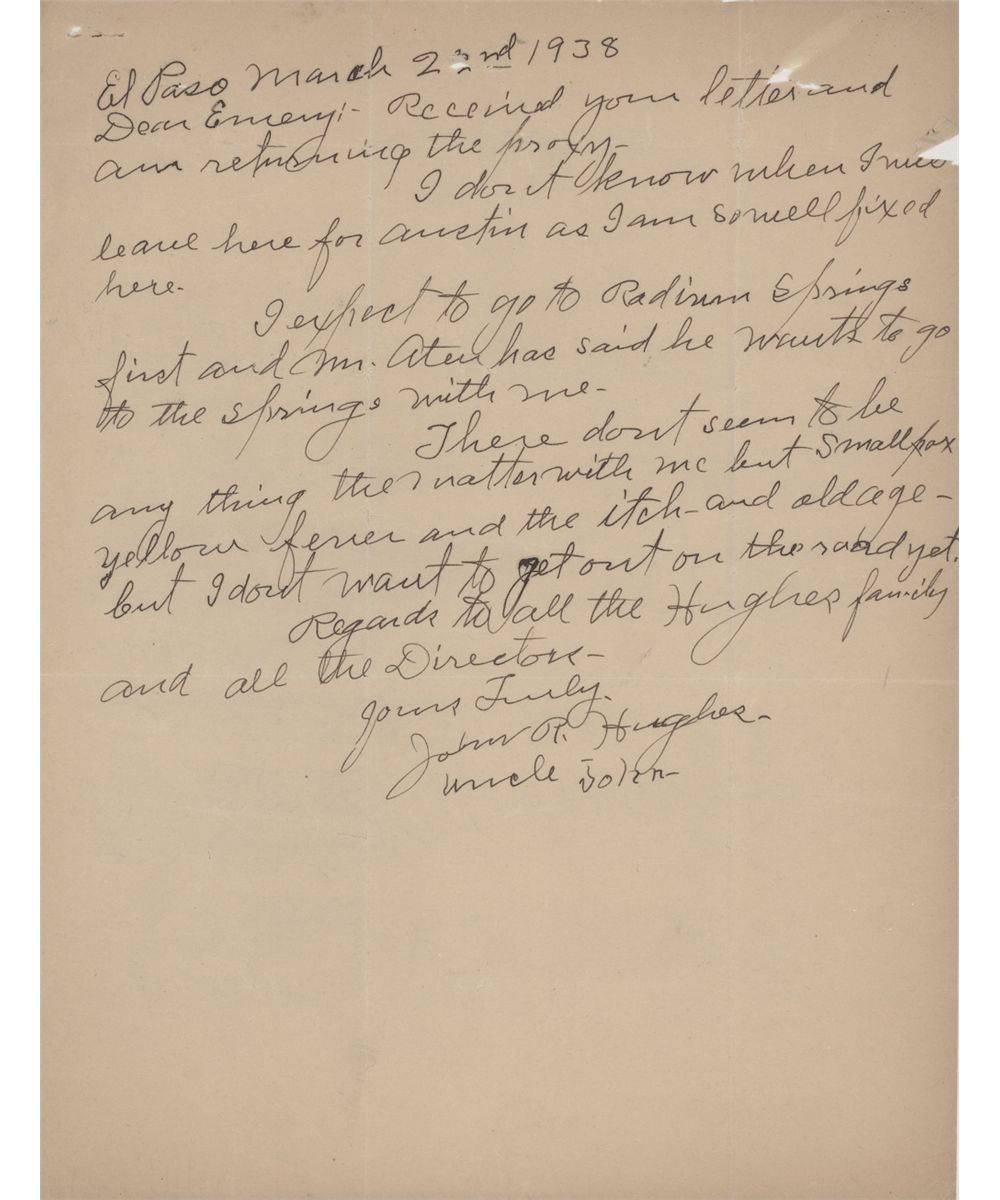 El Paso March 22nd 1938
Dear Emery:- Received your letter and
am returning the proxy-
I dont know when I will
leave here for Austin as I am so well fixed
here-
I expect to go to Radium Springs
first and Mr. Aten has said he wants to go
to the springs with me-
There dont seem to be
any thing the matter with me but Smallpox
yellow fever and the itch- and old age-
but I dont want to get out on the road yet.
Regards to all the Hughes family
and all the Directors-
Yours Truly.
John R. Hughes-
Uncle John-